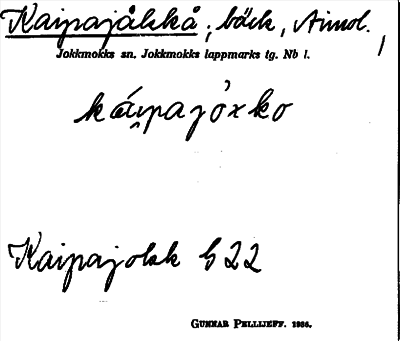 Kaipajåkkå, bäck, Aimol.,
Jokkmokks sn. Jokkmokks lappmarks tg. Nb l.
kái̯pajòxko
Kaipajokk G 22
GUNNAR PELLIJEFF. 1956.